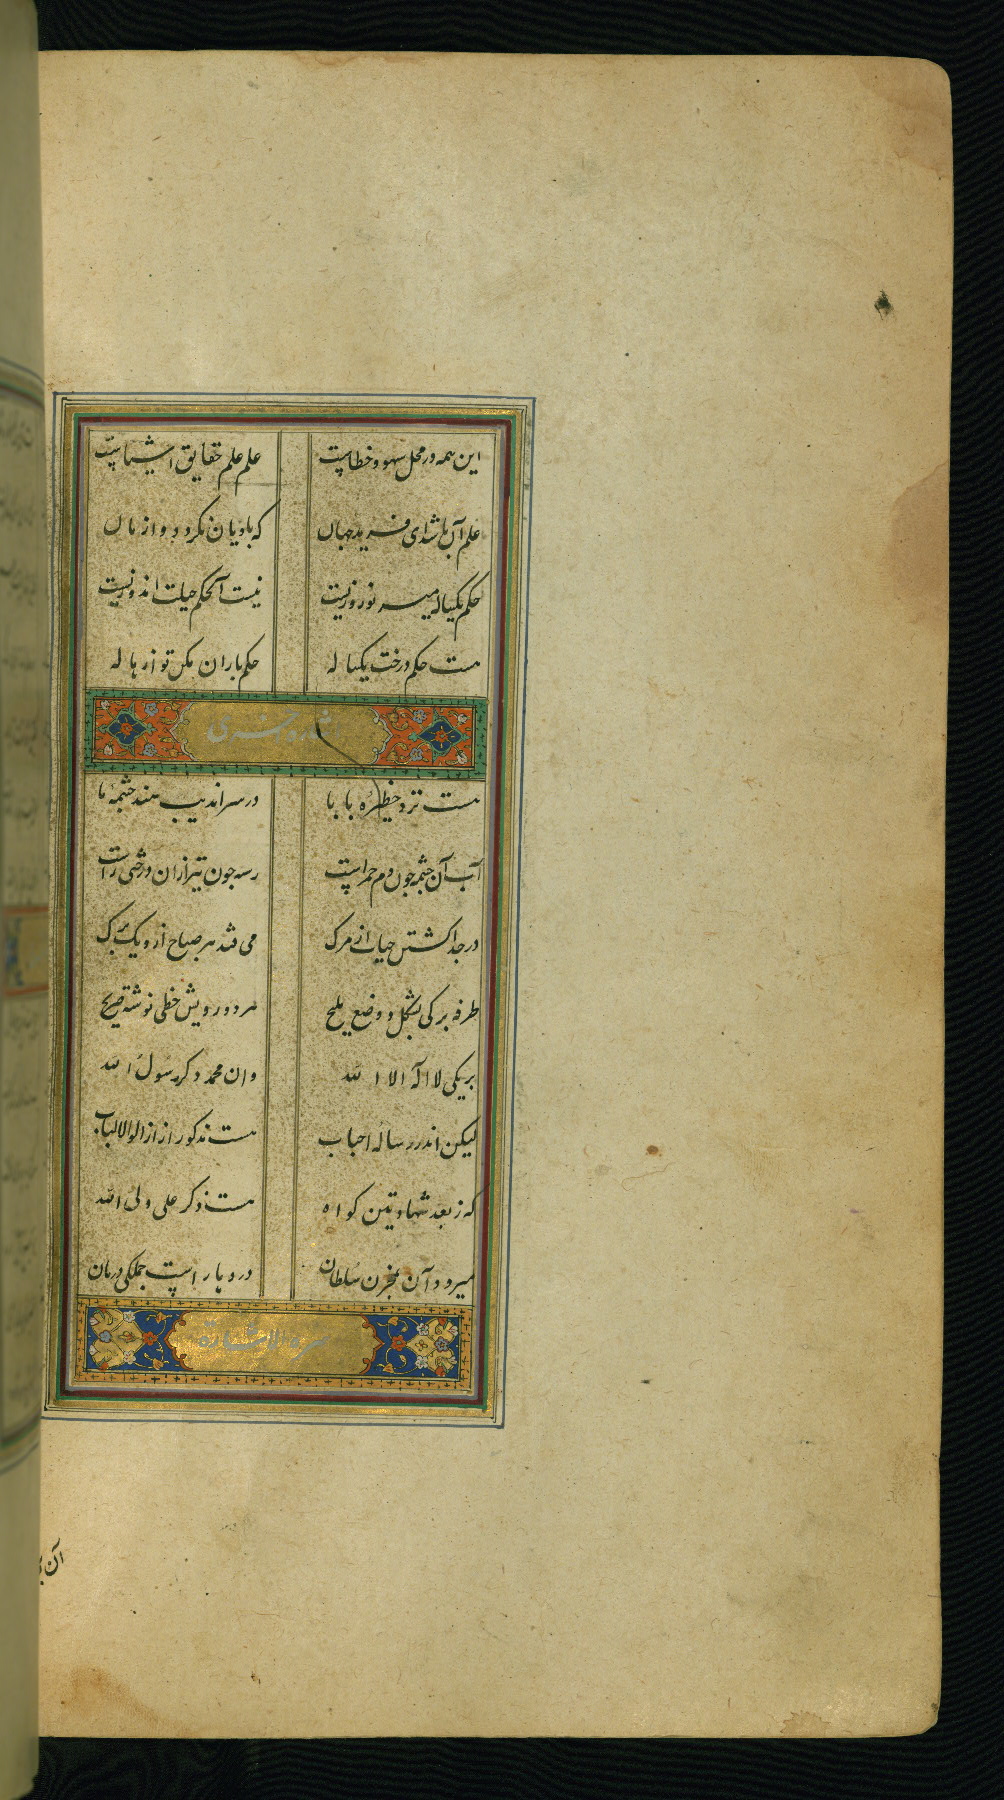 این همه در محل سهو و خطاست علم علم حقایق اشیاست
علم آن باشد ای فرید جهان که بادیان نکردد و ازمان
حکم یکساله میر نوروزیست نیست آن حکم حیلت اندوزیست
هست حکم درخت یکساله حکم باران مکن تو از هاله
هست نزد حظیره بابا در سراندیب هند چشمه ما
آب آن چشمه چون دم حمراست رسه چون تیر ازان درختی راست
در جدا کشتن حیات از مرک می فتد هر صباح ازو یک برک
طرفه برکی بشکل و وضع ملیح هر دو رویش خطی نوشته صریح
بر یکی لا اله الا الله وان محمد دکر رسول الله
لیکن اندر رساله احباب هست مذکور از اولو الالباب
که ز بعد شهادتین کواه هست ذکر علی ولی الله
میرود آن بمخزن سلطان درد را راست جملکی درمان
آن